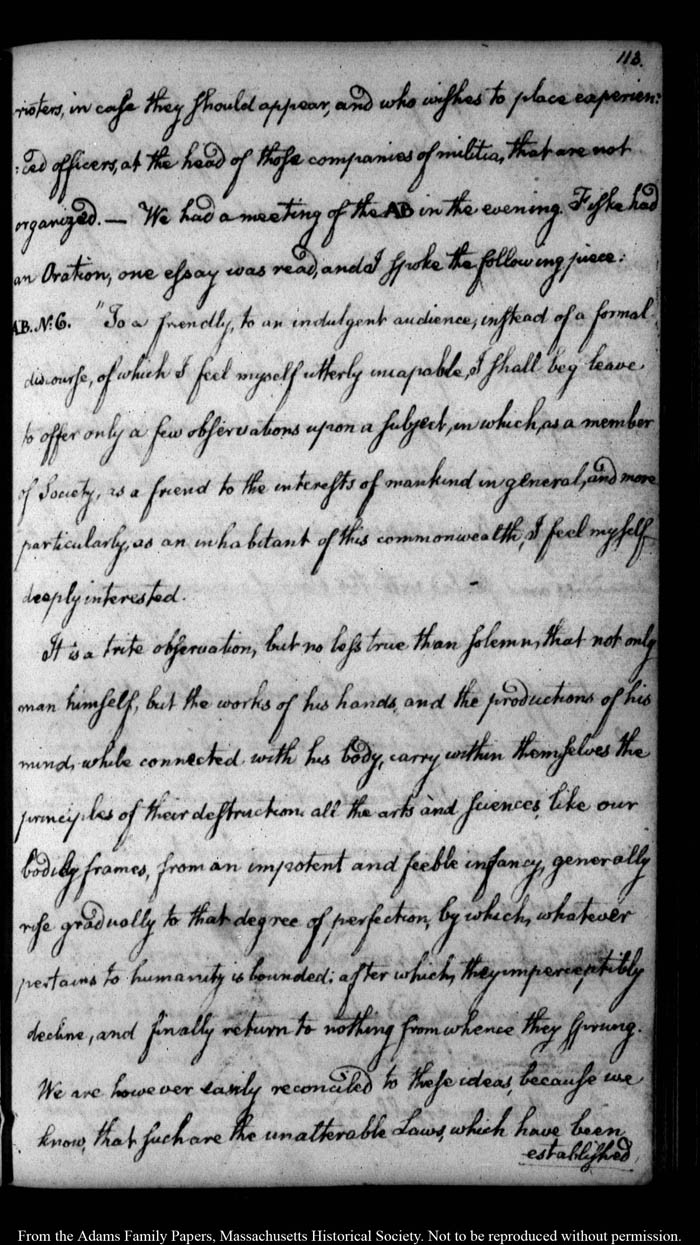 113.
rioters, in case they should appear, and who wishes to place experien:
:ced officers, at the head of those companies of militia, that are not
organized. — We had a meeting of the AB in the evening. Fiske had
an Oration, one essay was read, and I spoke the following piece:
AB. N:6. "To a friendly, to an indulgent audience, instead of a formal
discourse, of which I feel myself utterly incapable, I shall beg leave
to offer only a few observations upon a subject, in which, as a member
of Society, as a friend to the interests of mankind in general, and more
particularly, as an inhabitant of this commonwealth, I feel myself
deeply interested.
It is a trite observation, but no less true than solemn, that not only
man himself, but the works of his hands, and the productions of his
mind, while connected with his body, carry within themselves the
principles of their destruction: all the arts and sciences, like our
bodily frames, from an impotent and feeble infancy, generally
rise gradually to that degree of perfection, by which, whatever
pertains to humanity is bounded; after which, they imperceptibly
decline, and finally return to nothing from whence they sprung.
We are however easily reconciled to these ideas, because we
know, that such are the unalterable Laws, which have been
established
From the Adams Family Papers, Massachusetts Historical Society. Not to be reproduced without permission.